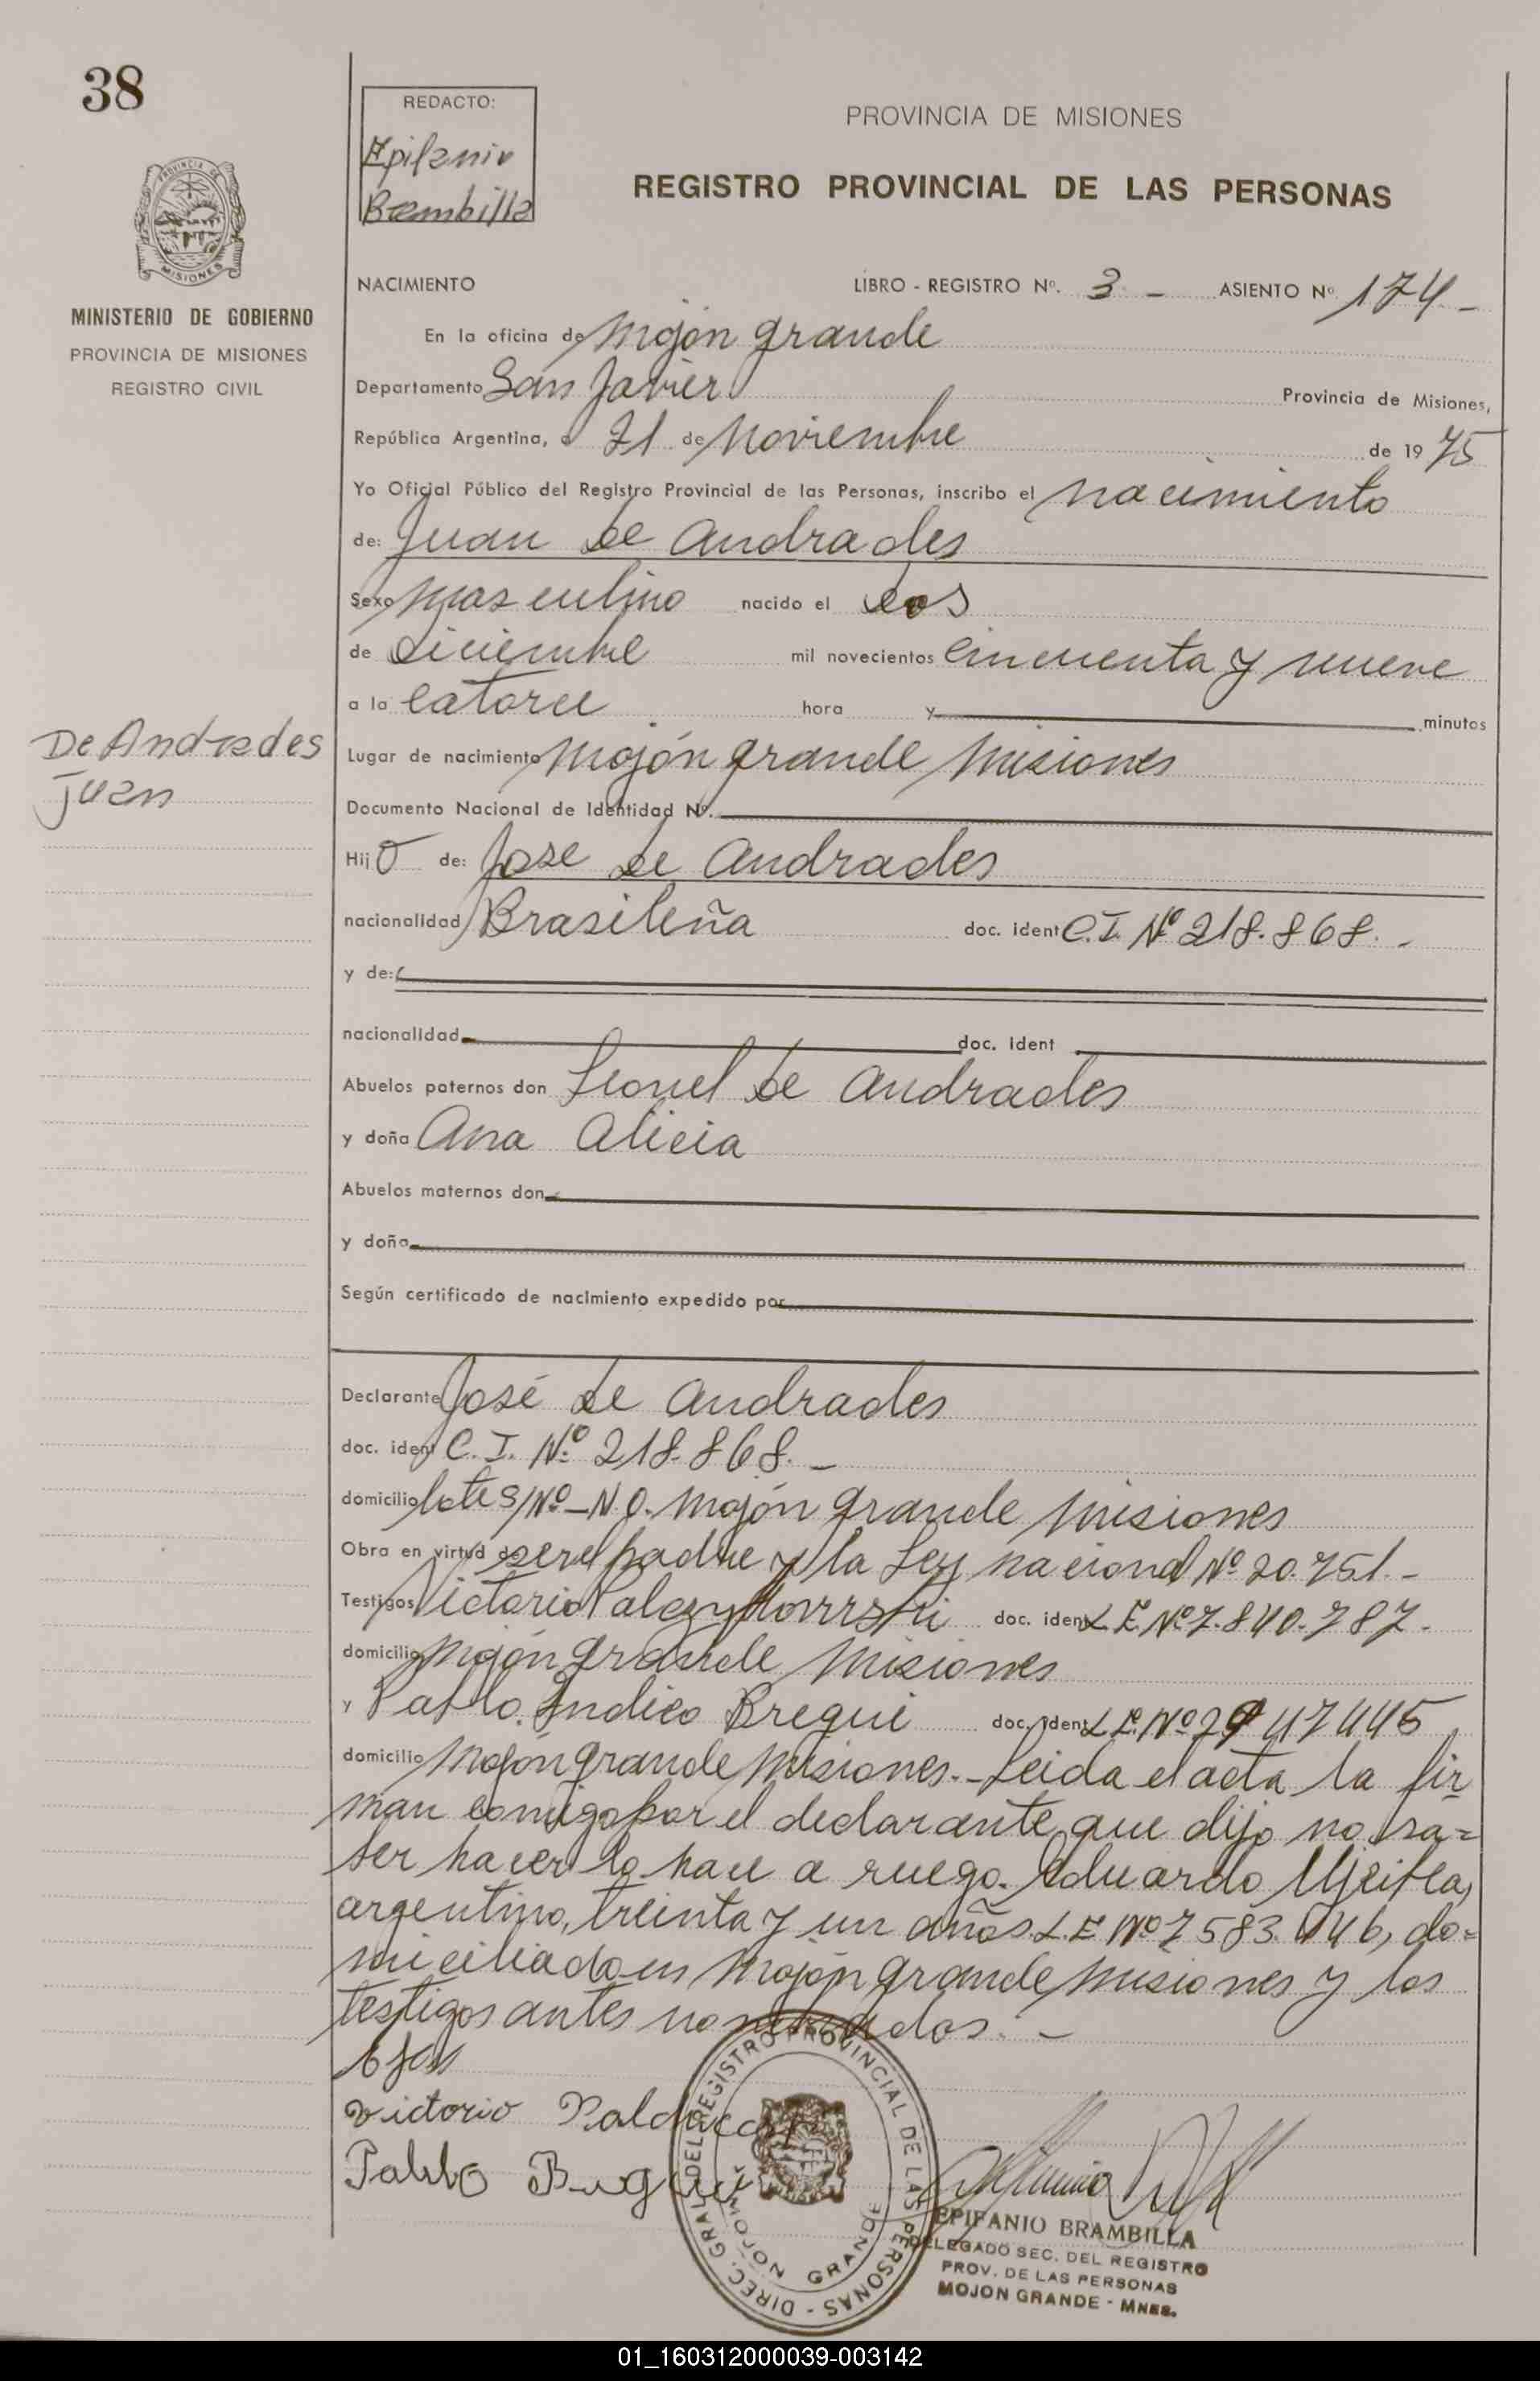 38
REDACTO:
Epifanio
Brambilla
PROVINCIA DE MISIONES
REGISTRO PROVINCIAL DE LAS PERSONAS
PROVINCIA DE
MISIONES
MINISTERIO DE GOBIERNO
PROVINCIA DE MISIONES
REGISTRO CIVIL
NACIMIENTO LIBRO - REGISTRO Nº. 3 - ASIENTO Nº 174 -
En la oficina de Mojón grande
Departamento San Javier Provincia de Misiones,
República Argentina, a 21 de Noviembre de 1975
Yo Oficial Público del Registro Provincial de las Personas, inscribo el nacimiento
de: Juan de Andrades
Sexo masculino nacido el dos
de diciembre mil novecientos cincuenta y nueve
a la catorce hora y minutos
De Andrades
Juan
Lugar de nacimiento Mojón grande Misiones
Documento Nacional de Identidad Nº.
Hijo de: Jose de Andrades
nacionalidad Brasileña doc. ident C.I. Nº 218.868. -
y de:
nacionalidad doc. ident
Abuelos paternos don Leonel de Andrades
y doña Ana Alicia
Abuelos maternos don
y doña
Según certificado de nacimiento expedido por
Declarante José de Andrades
doc. ident C. I. Nº 218.868. -
domicilio lote S/Nº - N.O. Mojón grande Misiones
Obra en virtud de ser el padre y la Ley nacional Nº 20.751. -
Testigos Victorio doc. ident L.E. Nº 7.840.787.
domicilio Mojón grande Misiones
y Pablo Indico Bregui doc. ident L.E. Nº 47445
domicilio Mojón grande Misiones. - Leida el acta la fir
man conmigo por el declarante que dijo no sa=
ber hacer lo hace a ruego. Eduardo
argentino, treinta y un años. L.E Nº 7583. do=
miciliado en Mojón grande Misiones y los
testigos antes nombrados. -
Victorio
Pablo
DIREC. GRAL. DEL REGISTRO PROVINCIAL DE LAS PERSONAS -
MOJON GRANDE
EPIFANIO BRAMBILLA
DELEGADO SEC. DEL REGISTRO
PROV. DE LAS PERSONAS
MOJON GRANDE - MNES.
01_160312000039-003142